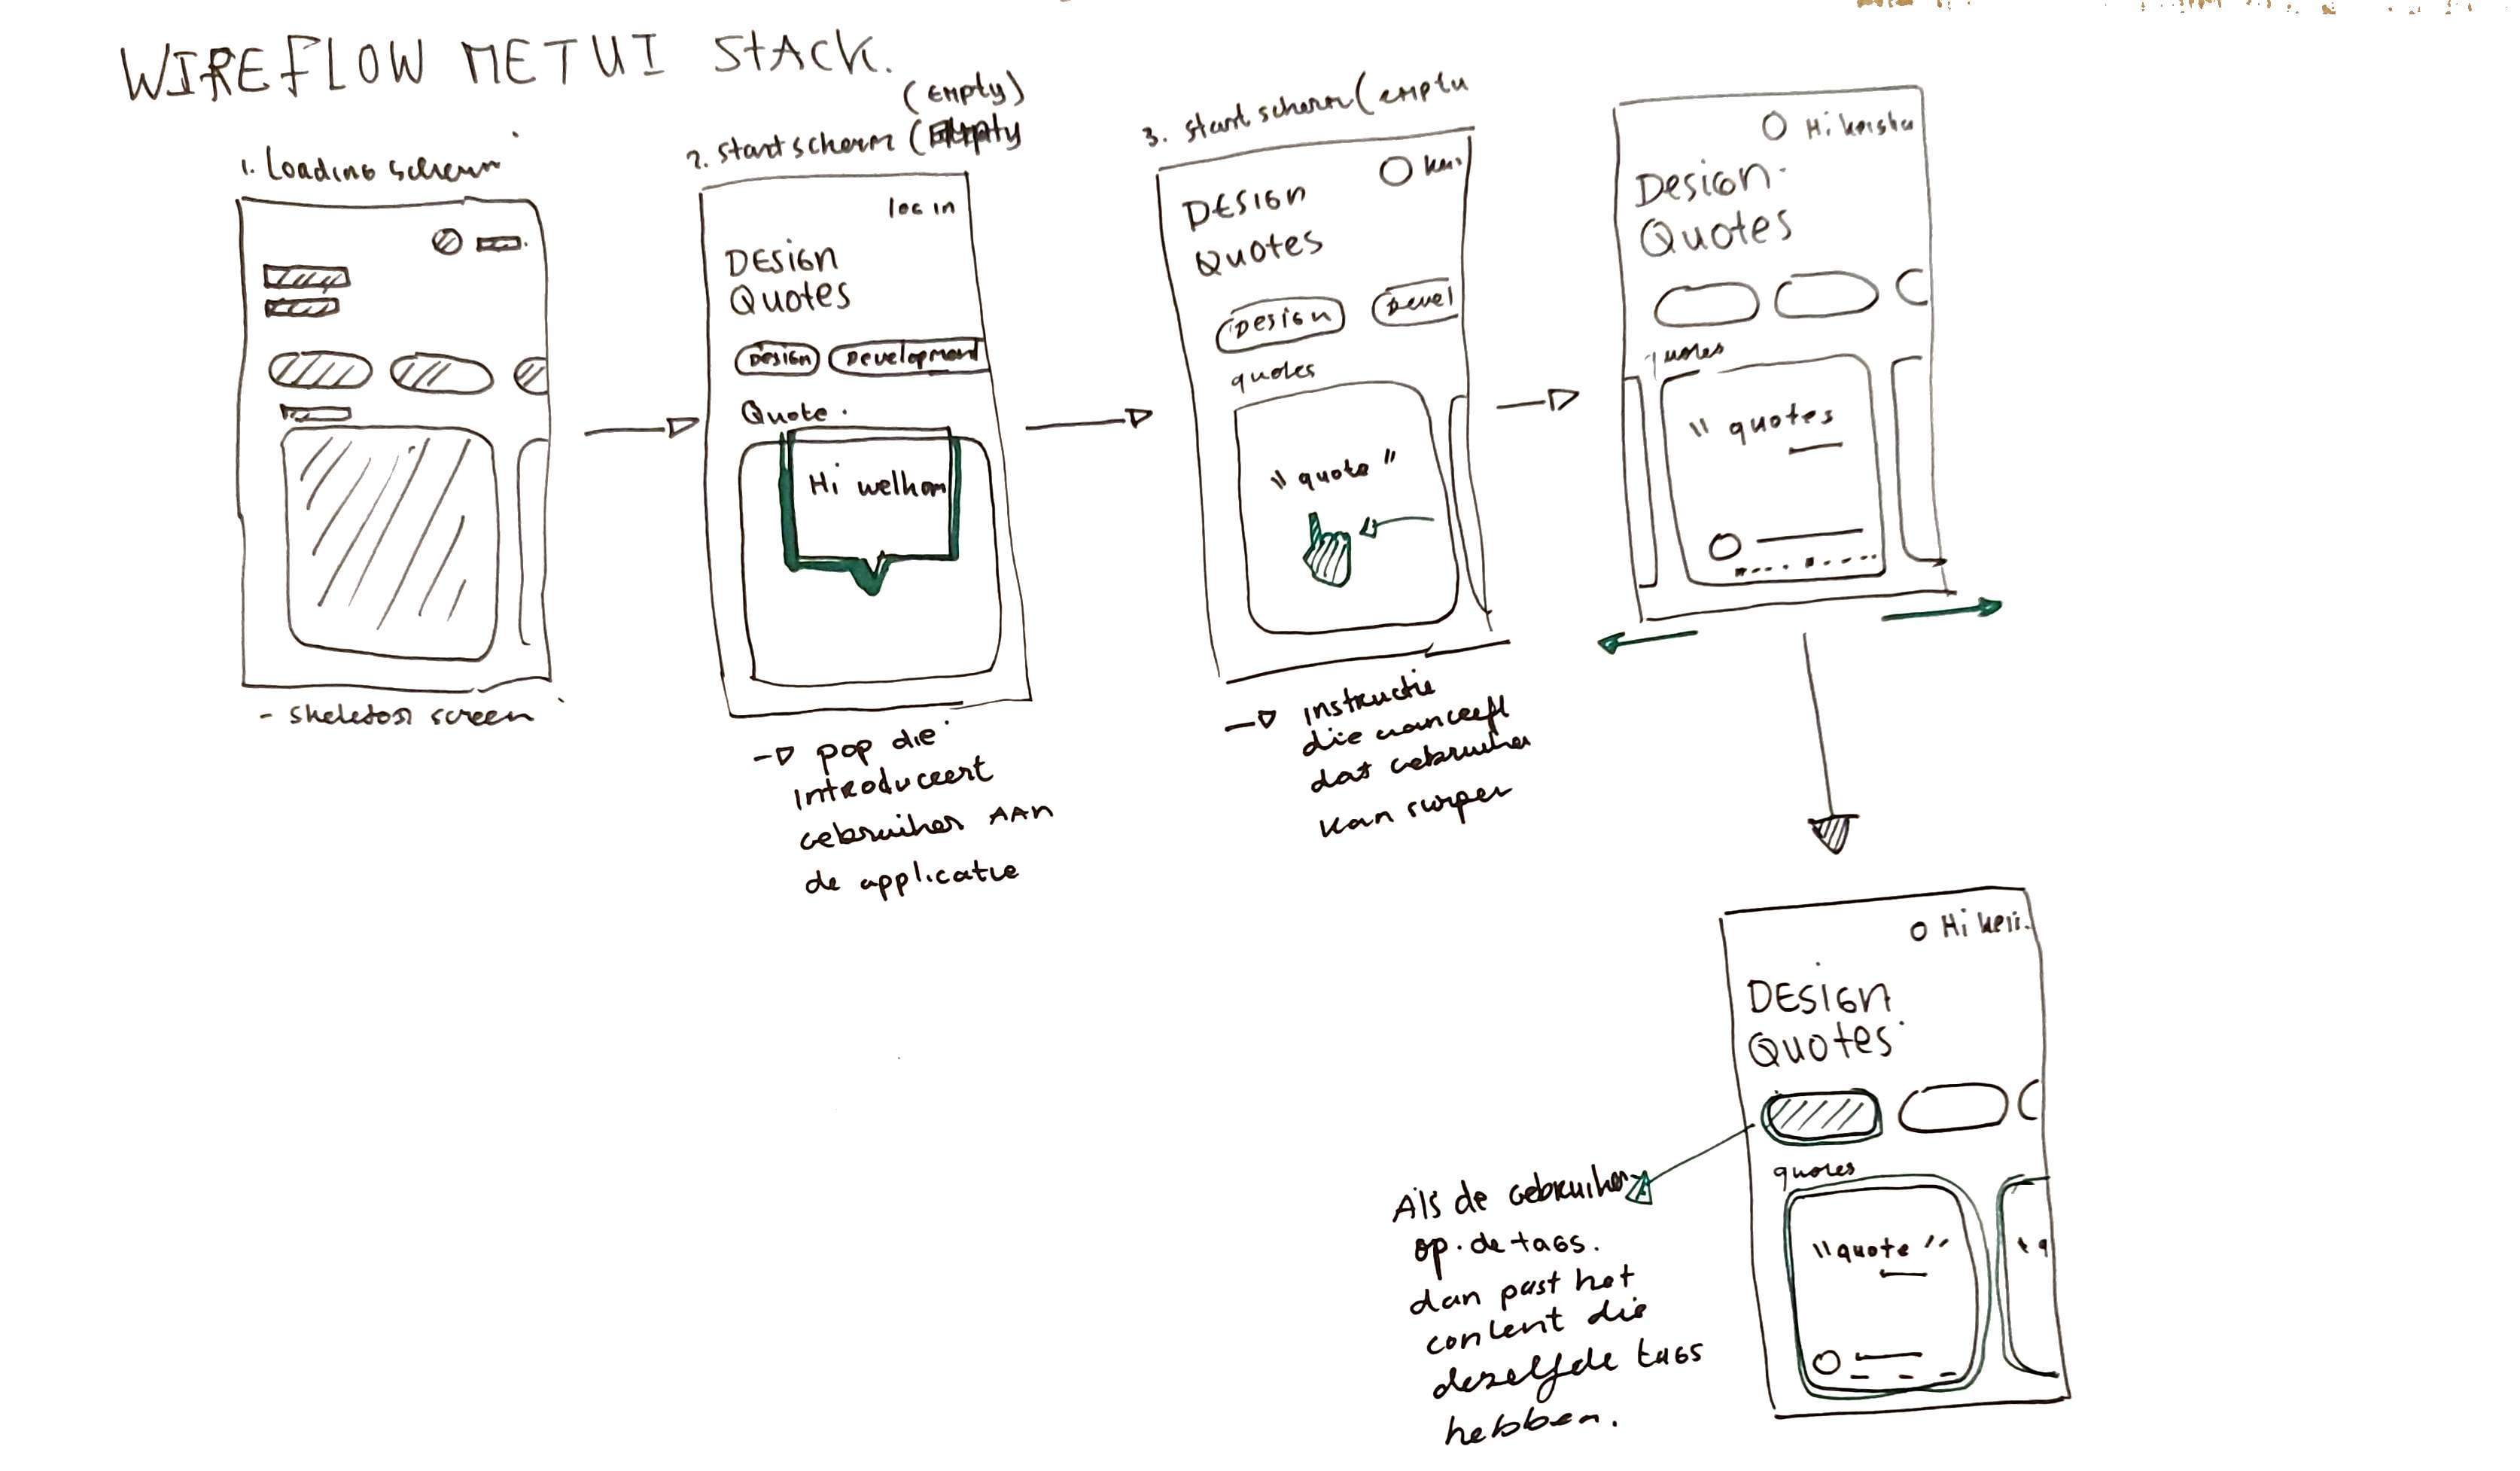 WIREFLOW MET UI STACK.
1. Loading scherm
- skeleton screen
(Empty)
2. startscherm (Empty
log in
DESIGN
Quotes
Design Development
Quote.
Hi welkom
→ pop die
introduceert
gebruiker AAN
de applicatie
3. start scherm (empty
DESIGN
Quotes
Design Devel
quotes
"quote"
→ instructie
die aangeeft
dat gebruiker
kan swipen
Design
Quotes
quotes
" quotes
Hi
DESIGN
Quotes
quotes
"quote"
"q
Als de gebruiker
op de tags.
dan past het
content die
dezelfde tags
hebben.